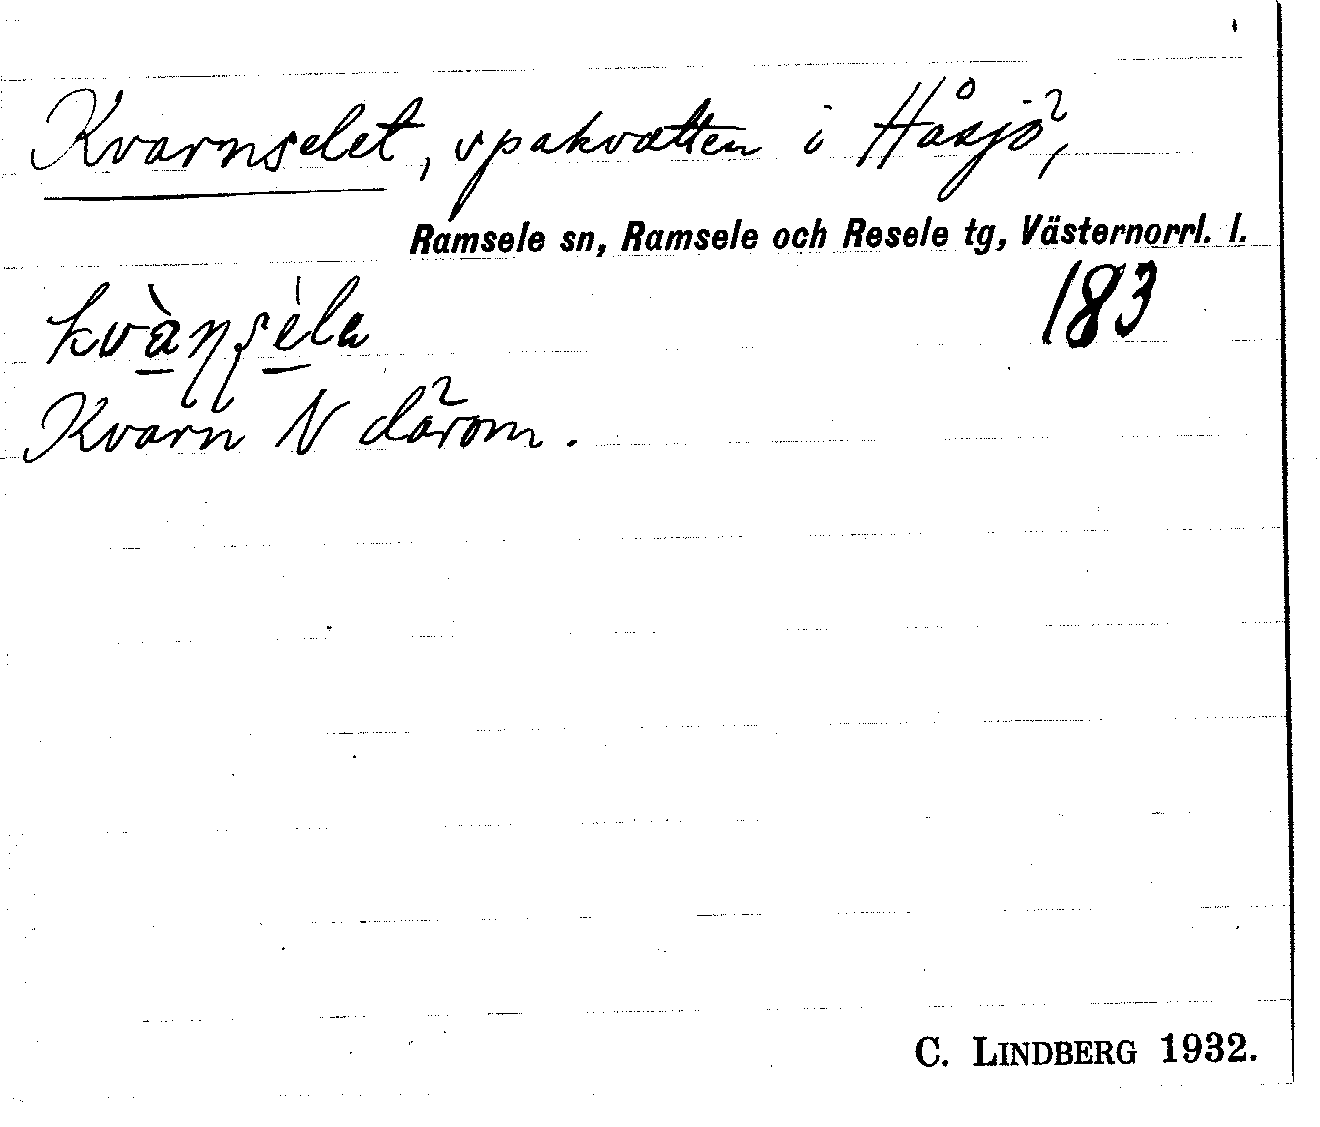 Kvarnselet, spakvatten i Håsjö,
Ramsele sn, Ramsele och Resele tg, Västernorrl. l.
183
Kvarn N därom.
C. LINDBERG 1932.